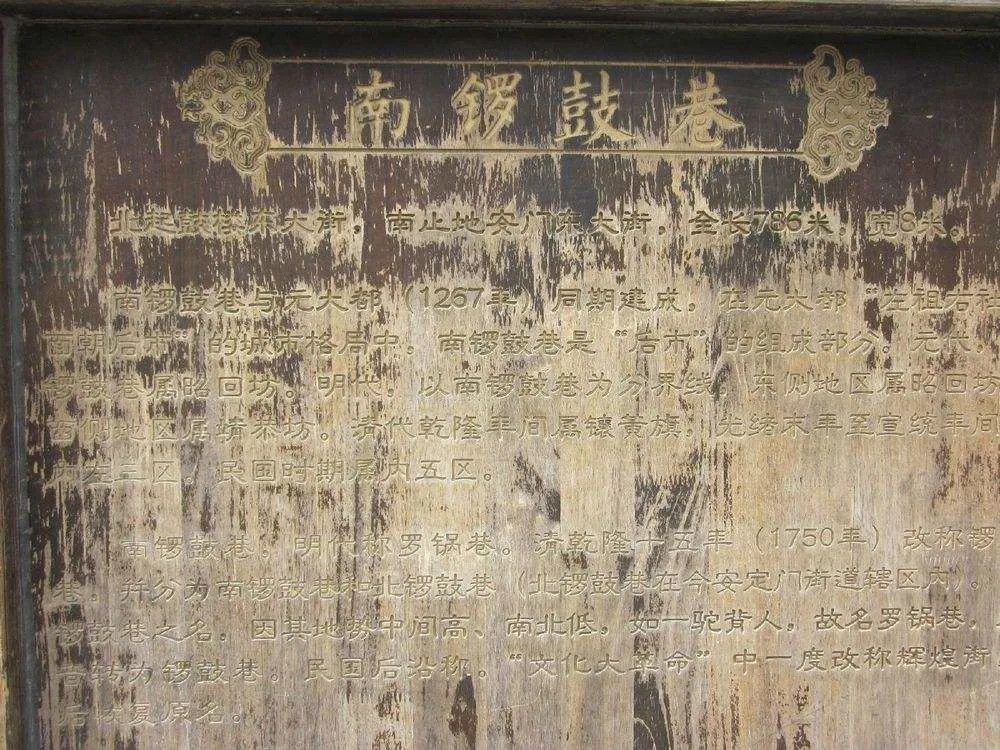 南锣鼓巷
北起鼓楼东大街，南止地安门东大街，全长786米，宽8米。
南锣鼓巷与元大都（1267年）同期建成。在元大都“左祖右社
面朝后市”的城市格局中，南锣鼓巷是“后市”的组成部分。元代，
锣鼓巷属昭回坊。明代，以南锣鼓巷为分界线，东侧地区属昭回坊
西侧地区属靖恭坊。清代乾隆年间属镶黄旗。光绪末年至宣统年间
内左三区。民国时期属内五区。
南锣鼓巷，明代称罗锅巷。清乾隆十五年（1750年）改称锣
巷。并分为南锣鼓巷和北锣鼓巷（北锣鼓巷在今安定门街道辖区内）。
锣鼓巷之名，因其地势中间高、南北低，如一驼背人，故名罗锅巷，
音转为锣鼓巷。民国后沿称。“文化大革命”中一度改称辉煌街
后恢复原名。